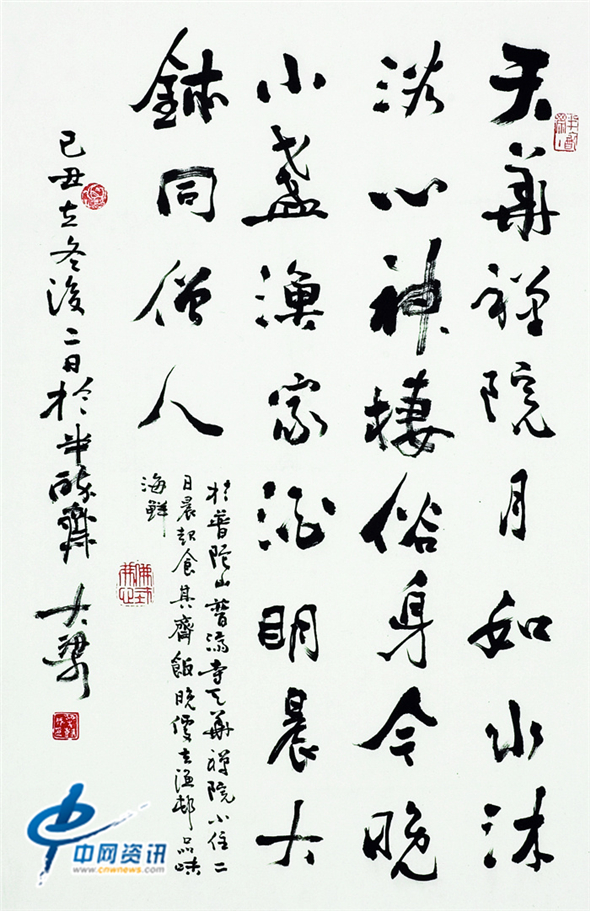 天華禪院月如水沐
淡心神棲俗身今晚
小盞漁家酒明晨大
鉢同僧人
於普陀山普濟寺天華禪院小住二
日晨起食其齋飯晚便去漁邨品味
海鮮
己丑立冬後二日於半醉齋 大梁
中网资讯
www.cnwnews.com